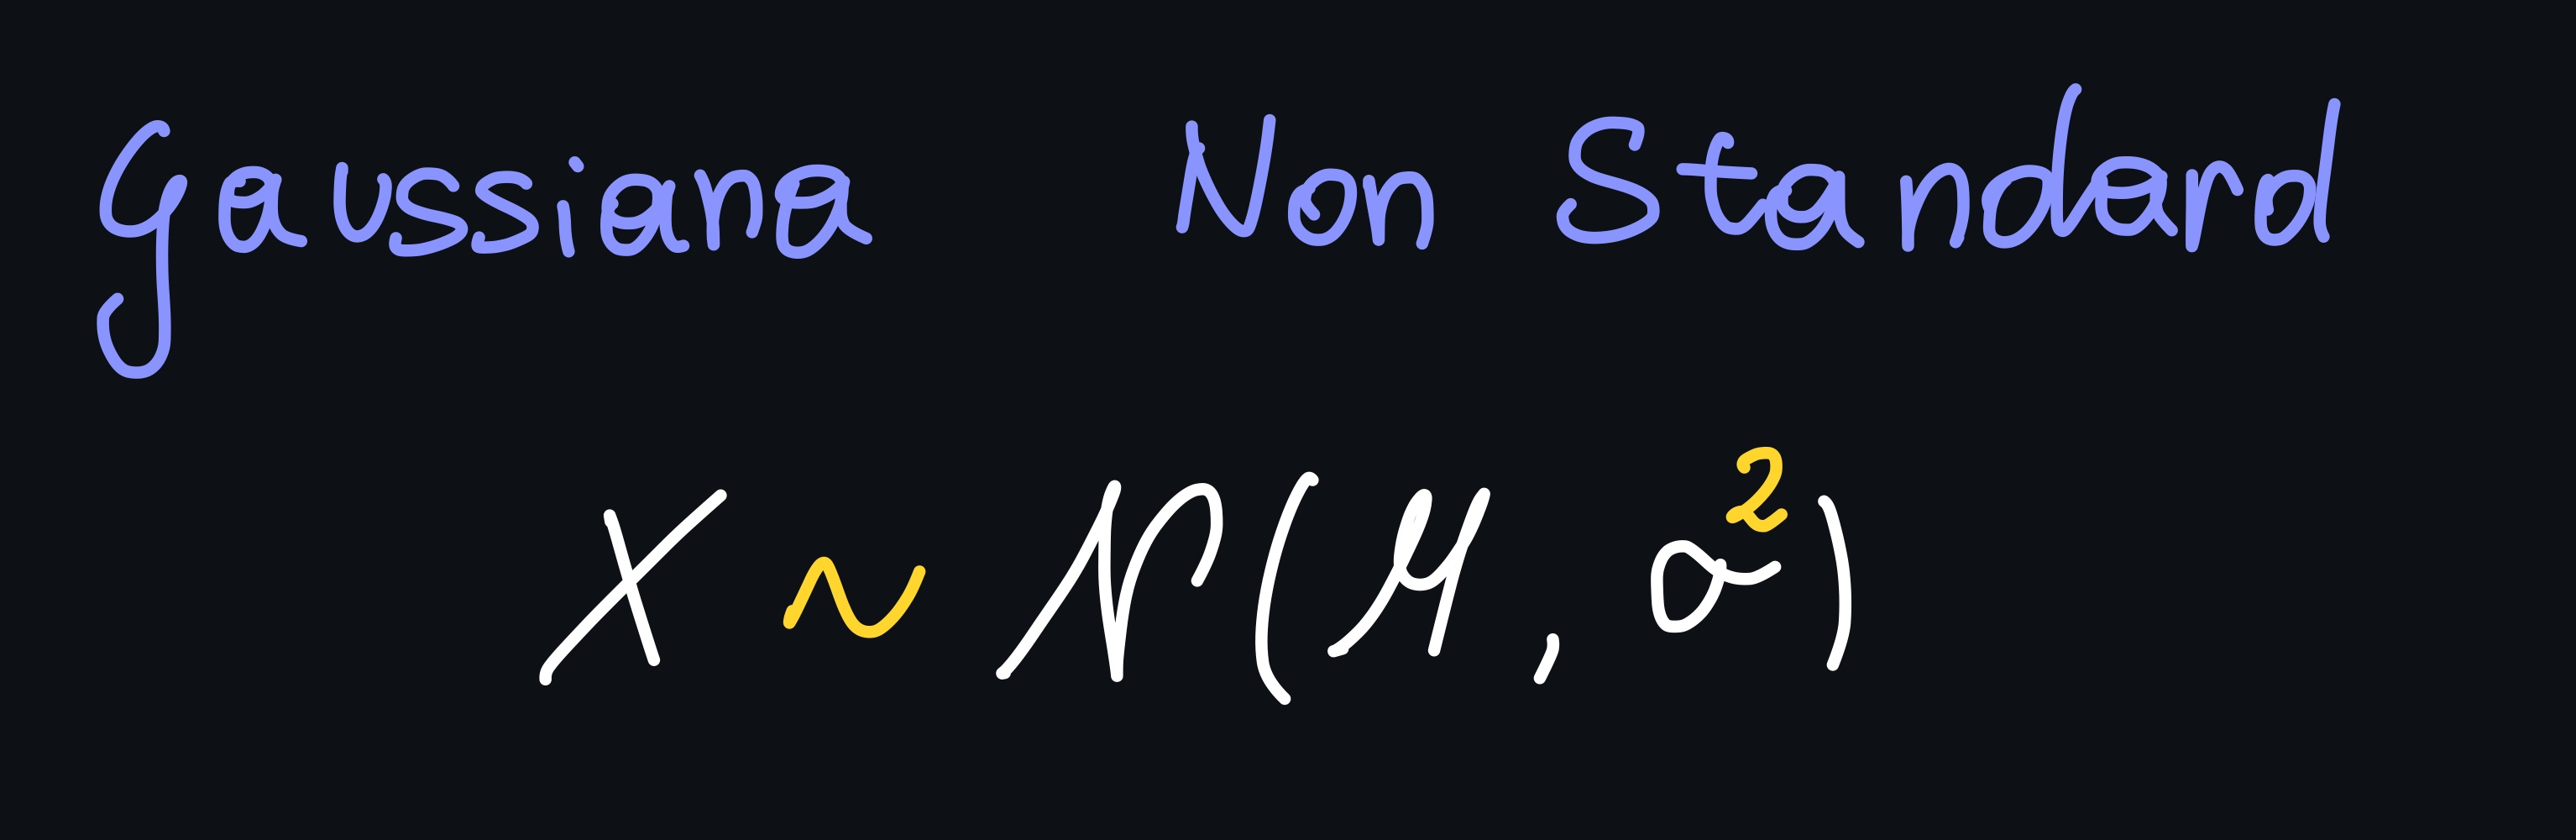 Gaussiana Non Standard
X ~ N(μ, σ²)